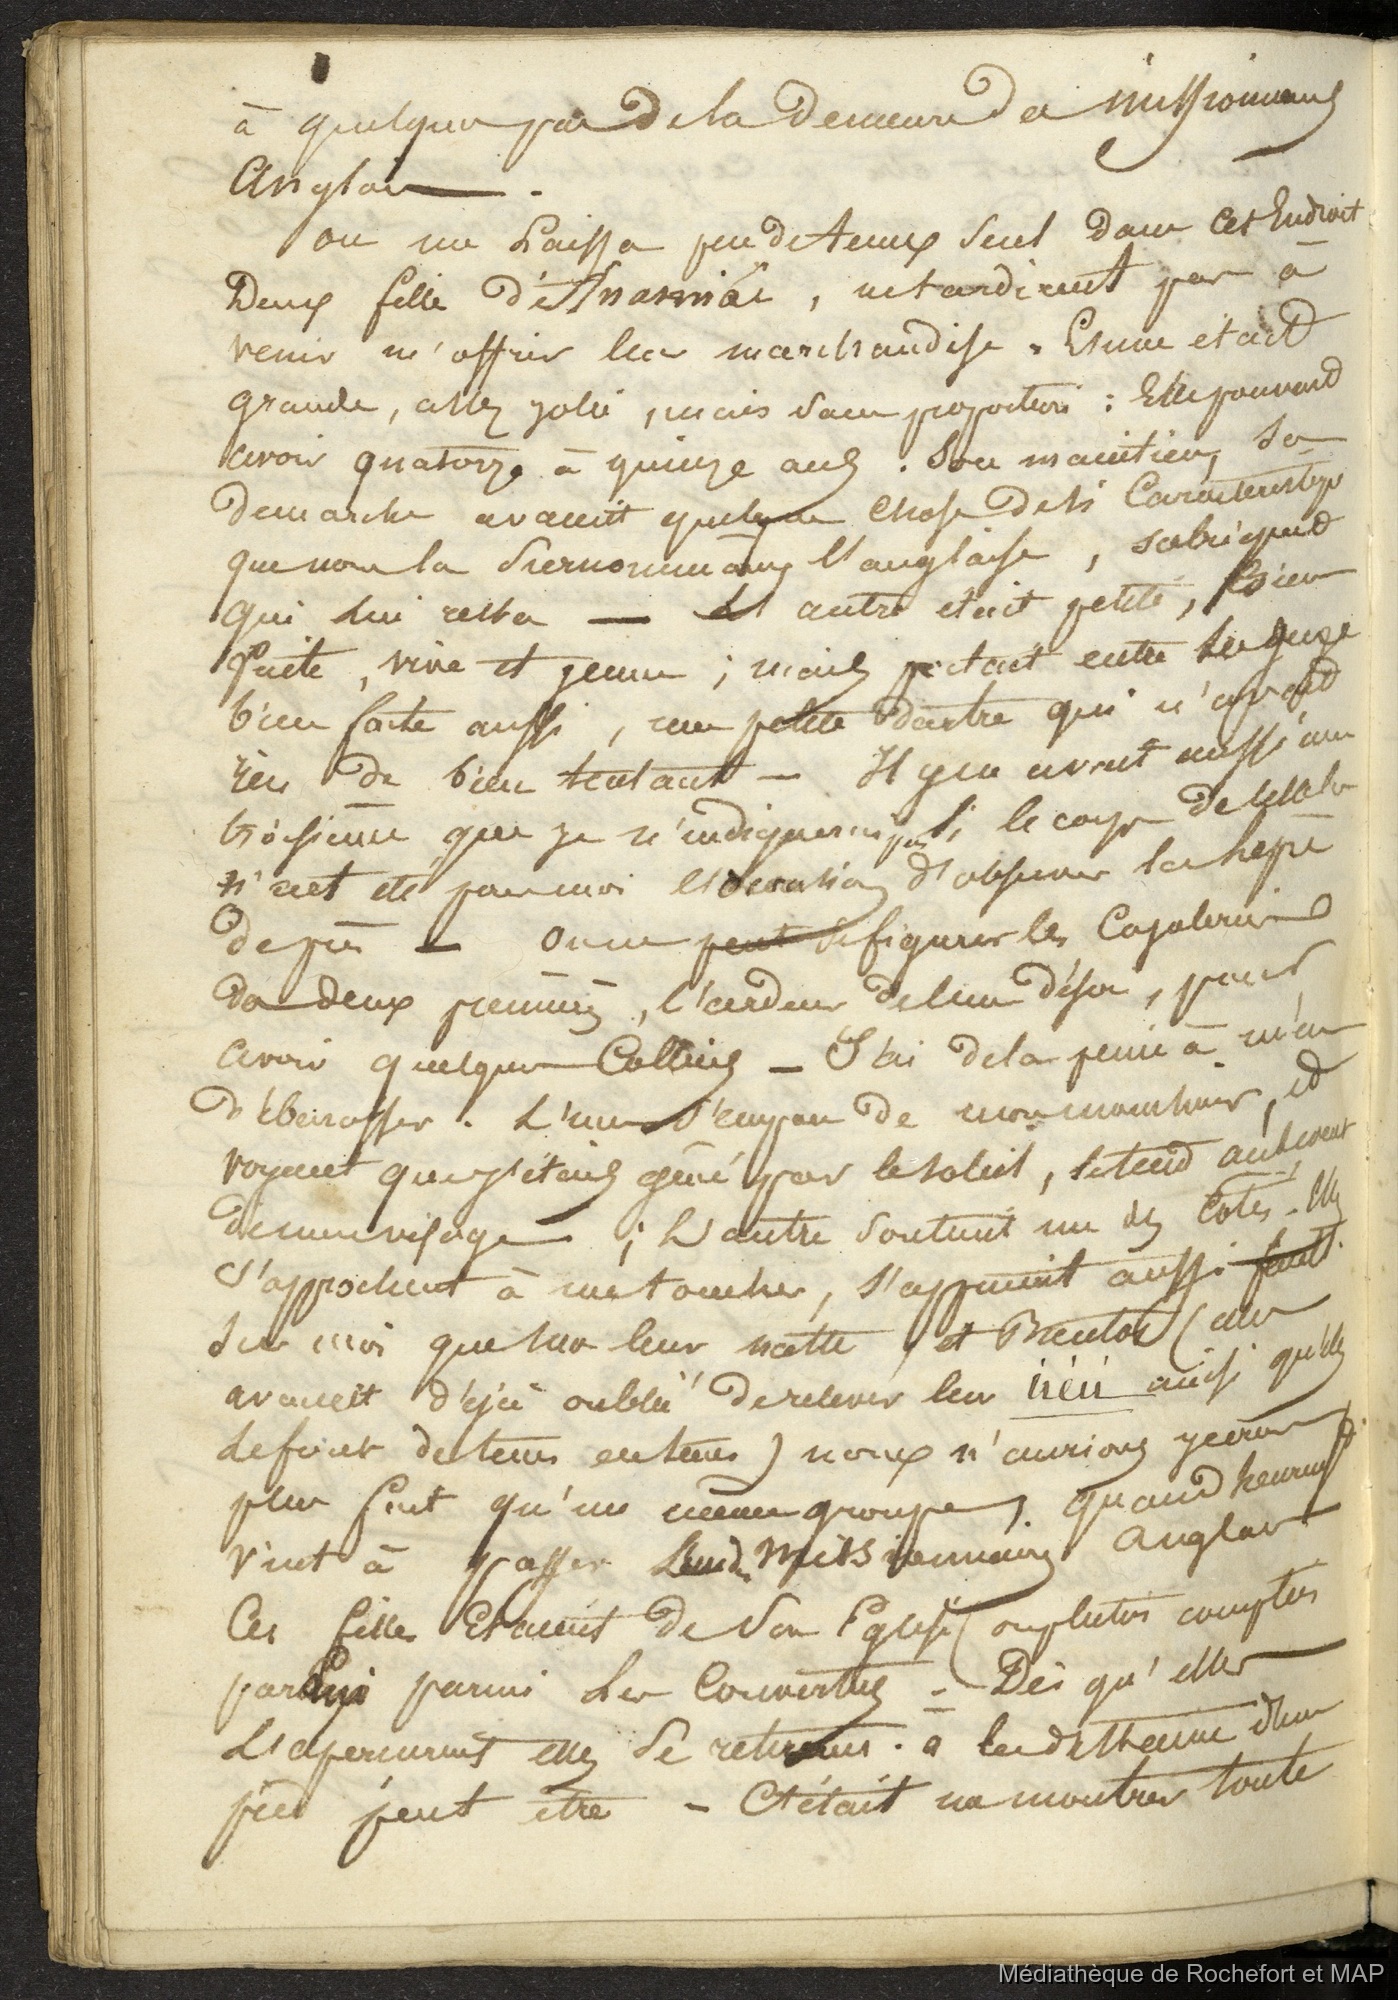 à quelques pas de la demeure des missionnaires
Anglais.
on me Laissa peu de temps seul dans cet Endroit
Deux filles d', ne tardèrent pas à
venir m'offrir leur marchandise. L'une était
grande, assez jolie, mais sans proportions : Elle pouvait
avoir quatorze à quinze ans. Son maintien, sa
demarche avaient quelque chose de si Caracteristique
que nous la surnommâmes l'anglaise, sobriquet
qui lui resta — L'autre était petite, bien
faite, vive et jeune ; mais portait entre les
bien faite aussi, une petite dartre qui n'avait
rien de bien tentant — Il y en avait aussi une
troisième que je n'indiquerais pas si le corps de celle là
n'eut été pour moi l'occasion d'observer la lèpre
de près — on ne peut se figurer les Cajoleries
des deux premières, l'ardeur de leur désir, pour
avoir quelques Colliers — J'ai de la peine à m'en
débarrasser. L'une s'empare de mon mouchoir, et
voyant que j'étais gêné par le soleil, le tend au devant
de mon visage ; L'autre soutenait un des Cotés. Elles
s'approchent à me toucher, s'appuient aussi
sur moi que sur leur natte, et Bientôt (elles
avaient déja oublié de relever leur iréii ainsi qu'elles
le font de tems en tems) nous n'aurions
plus fait qu'un même groupe, quand heureusement
vint à passer missionnaires Anglais
Ces filles Etaient de son Eglise (ou plutôt comptées
par lui parmi les Converties — Dès qu'elles
L'aperçurent elles se retirèrent. à la distance d'un
pied peut être — C'était me montrer toute
Médiathèque de Rochefort et MAP